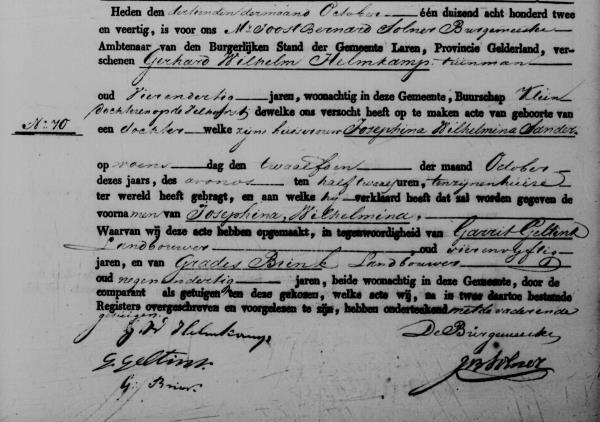 Heden den dertienden der maand October één duizend acht honderd twee
en veertig, is voor ons Mr Joost Bernard Solner Burgemeester
Ambtenaar van den Burgerlijken Stand der Gemeente Laren, Provincie Gelderland, ver-
schenen Gerhard Wilhelm Helmkamp, tuinman
oud Vier en dertig jaren, woonachtig in deze Gemeente, Buurschap Klein
Dochteren op de dewelke ons versocht heeft op te maken acte van geboorte van
No. 70
een dochter welke zijne huisvrouw Josephina Wilhelmina Sander
op woens dag den twaalfden der maand October
dezes jaars, des avonds ten half twaalf uren, ten zijnen huize
ter wereld heeft gebragt, en aan welke hij verklaard heeft dat zal worden gegeven de
voornamen van Josephina, Wilhelmina,
Waarvan wij deze acte hebben opgemaakt, in tegenwoordigheid van Garrit Geltink
Landbouwer oud vier en vijftig
jaren, en van Grades Brink Landbouwer
oud negen en dertig jaren, beide woonachtig in deze Gemeente, door de
comparant als getuigen ten deze gekozen, welke acte wij, na in twee daartoe bestemde
Registers overgeschreven en voorgelezen te zijn, hebben onderteekend met de vader en de
getuigen.
G W Helmkamp
De Burgemeester
G. Geltink.
JB Solner
G. Brink